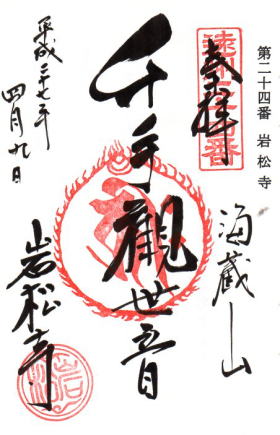 第二十四番　岩松寺
奉拝
海蔵山
千手觀世音
岩松寺
平成二十七年
四月九日